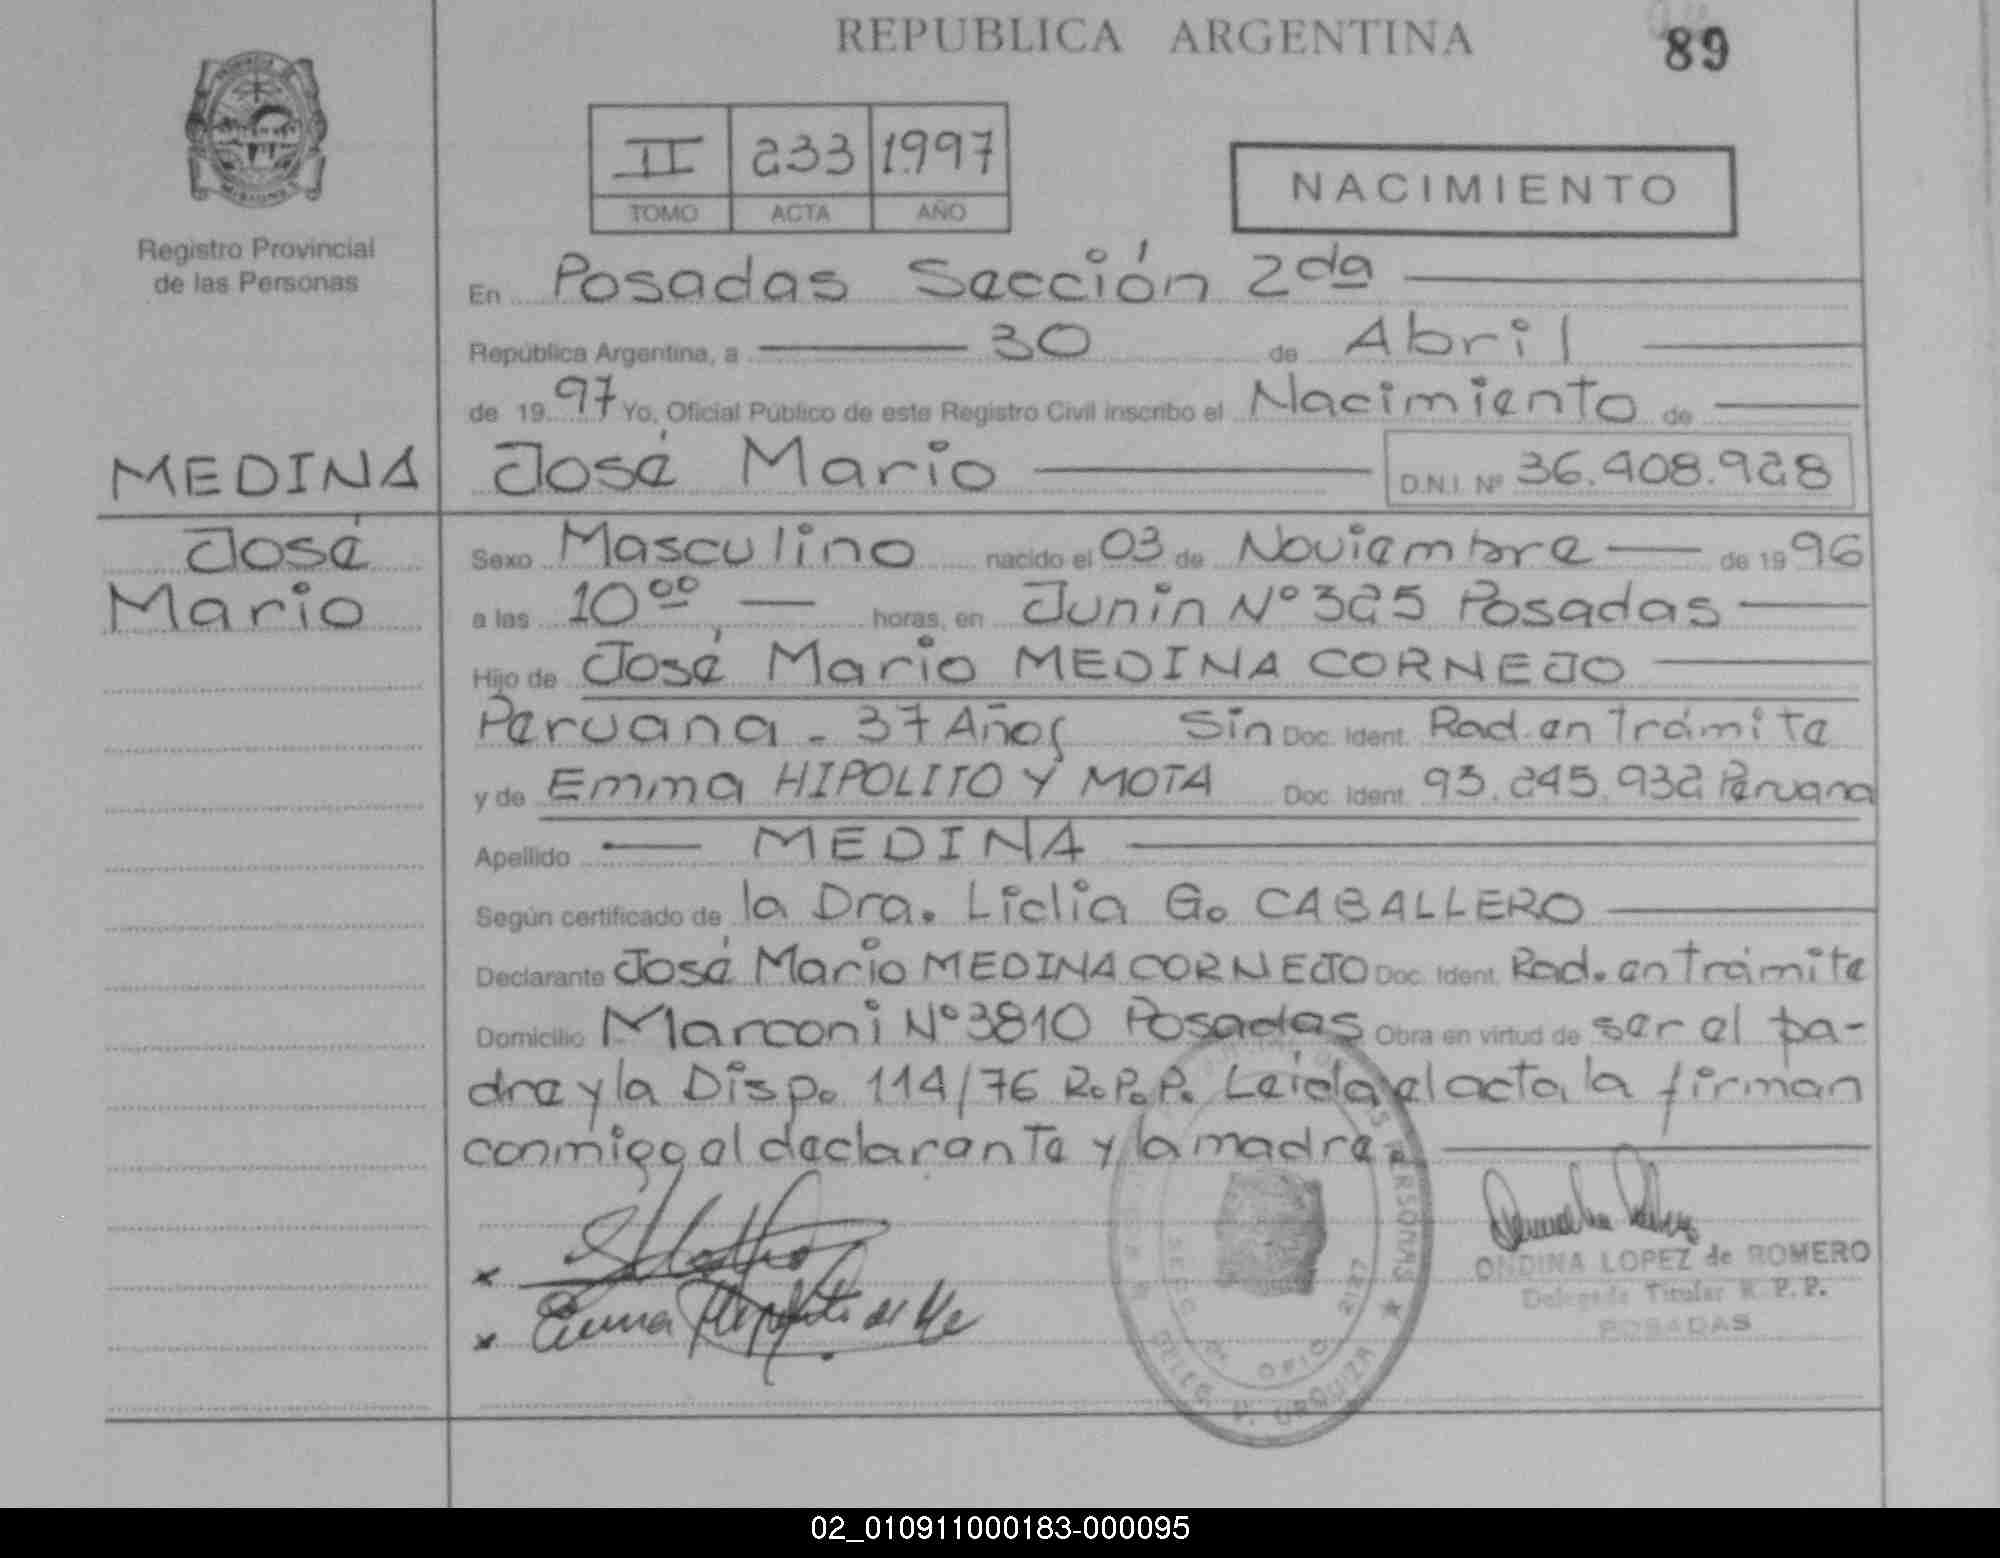 REPUBLICA ARGENTINA
89
II 233 1997
TOMO ACTA AÑO
NACIMIENTO
Registro Provincial
de las Personas
En Posadas Sección 2da
República Argentina, a 30 de Abril
de 1997 Yo, Oficial Público de este Registro Civil inscribo el Nacimiento de
MEDINA José Mario D.N.I. Nº 36.408.928
José
Mario
Sexo Masculino nacido el 03 de Noviembre de 1996
a las 10⁰⁰, horas, en Junin Nº 325 Posadas
Hijo de José Mario MEDINA CORNEJO
Peruana - 37 Años Sin Doc. Ident. Rad. en Trámite
y de Emma HIPOLITO Y MOTA Doc. Ident. 93.245.932 Peruana
Apellido MEDINA
Según certificado de la Dra. Liclia G. CABALLERO
Declarante José Mario MEDINA CORNEJO Doc. Ident. Rad. en trámite
Domicilio Marconi Nº 3810 Posadas Obra en virtud de ser el pa-
dre y la Disp. 114/76 R.P.P. Leida el acta, la firman
conmigo el declarante y la madre.
Emma
ONDINA LOPEZ de ROMERO
Delegada Titular R.P.P.
POSADAS
PERSONAS
SECC 2ª OFIC 2127
URQUIZA
02_010911000183-000095